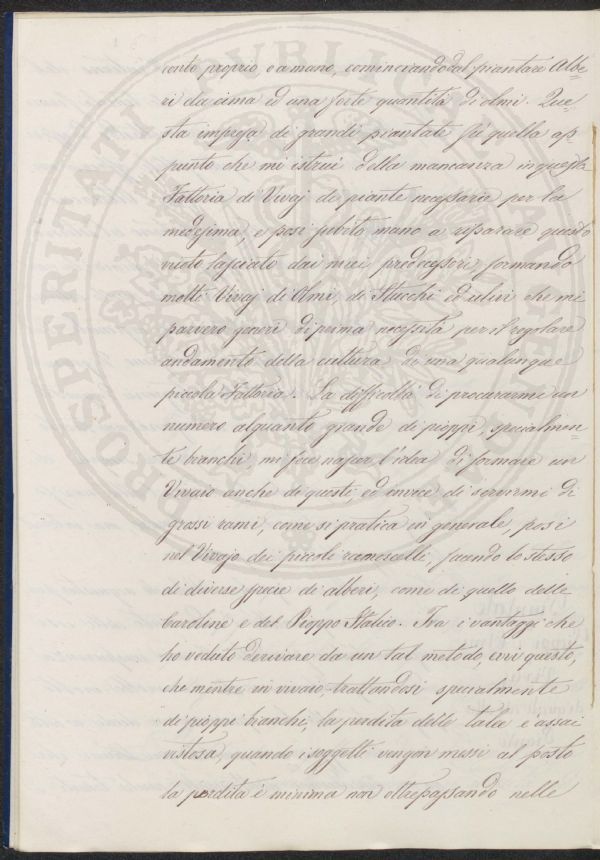 conto proprio, o a mano, cominciando dal piantare Albe=
ri da cima ed una forte quantità di olmi. Que=
sta impresa di grandi piantate fù quella ap=
punto che mi istruì della mancanza in questa
Fattoria di Vivaj di piante necessarie per la
medesima, e posi subito mano a riparare questo
vuoto lasciato dai miei predecessori, formando
molti Vivaj di Olmi, di Stucchi ed ulivi che mi
parvero generi di prima necessità per il regolare
andamento della cultura di una qualunque
piccola Fattoria. La difficoltà di procurarmi un
numero alquanto grande di pioppi, specialmen=
te bianchi, mi fece nascer l'idea di formare un
Vivaio anche di questi, ed invece di servirmi di
grossi rami, come si pratica in generale, posi
nel Vivajo dei piccoli ramoscelli, facendo lo stesso
di diverse specie di alberi, come di quello delle
Caroline e del Pioppo Italico. Tra i vantaggi che
ho veduto derivare da un tal metodo, evvi questo,
che mentre in vivaio trattandosi specialmente
di pioppi bianchi, la perdita delle talee è assai
vistosa, quando i soggetti vengon messi al posto
la perdita è minima non oltrepassando nelle
PROSPERITATI PVBLICAE AVGENDAE